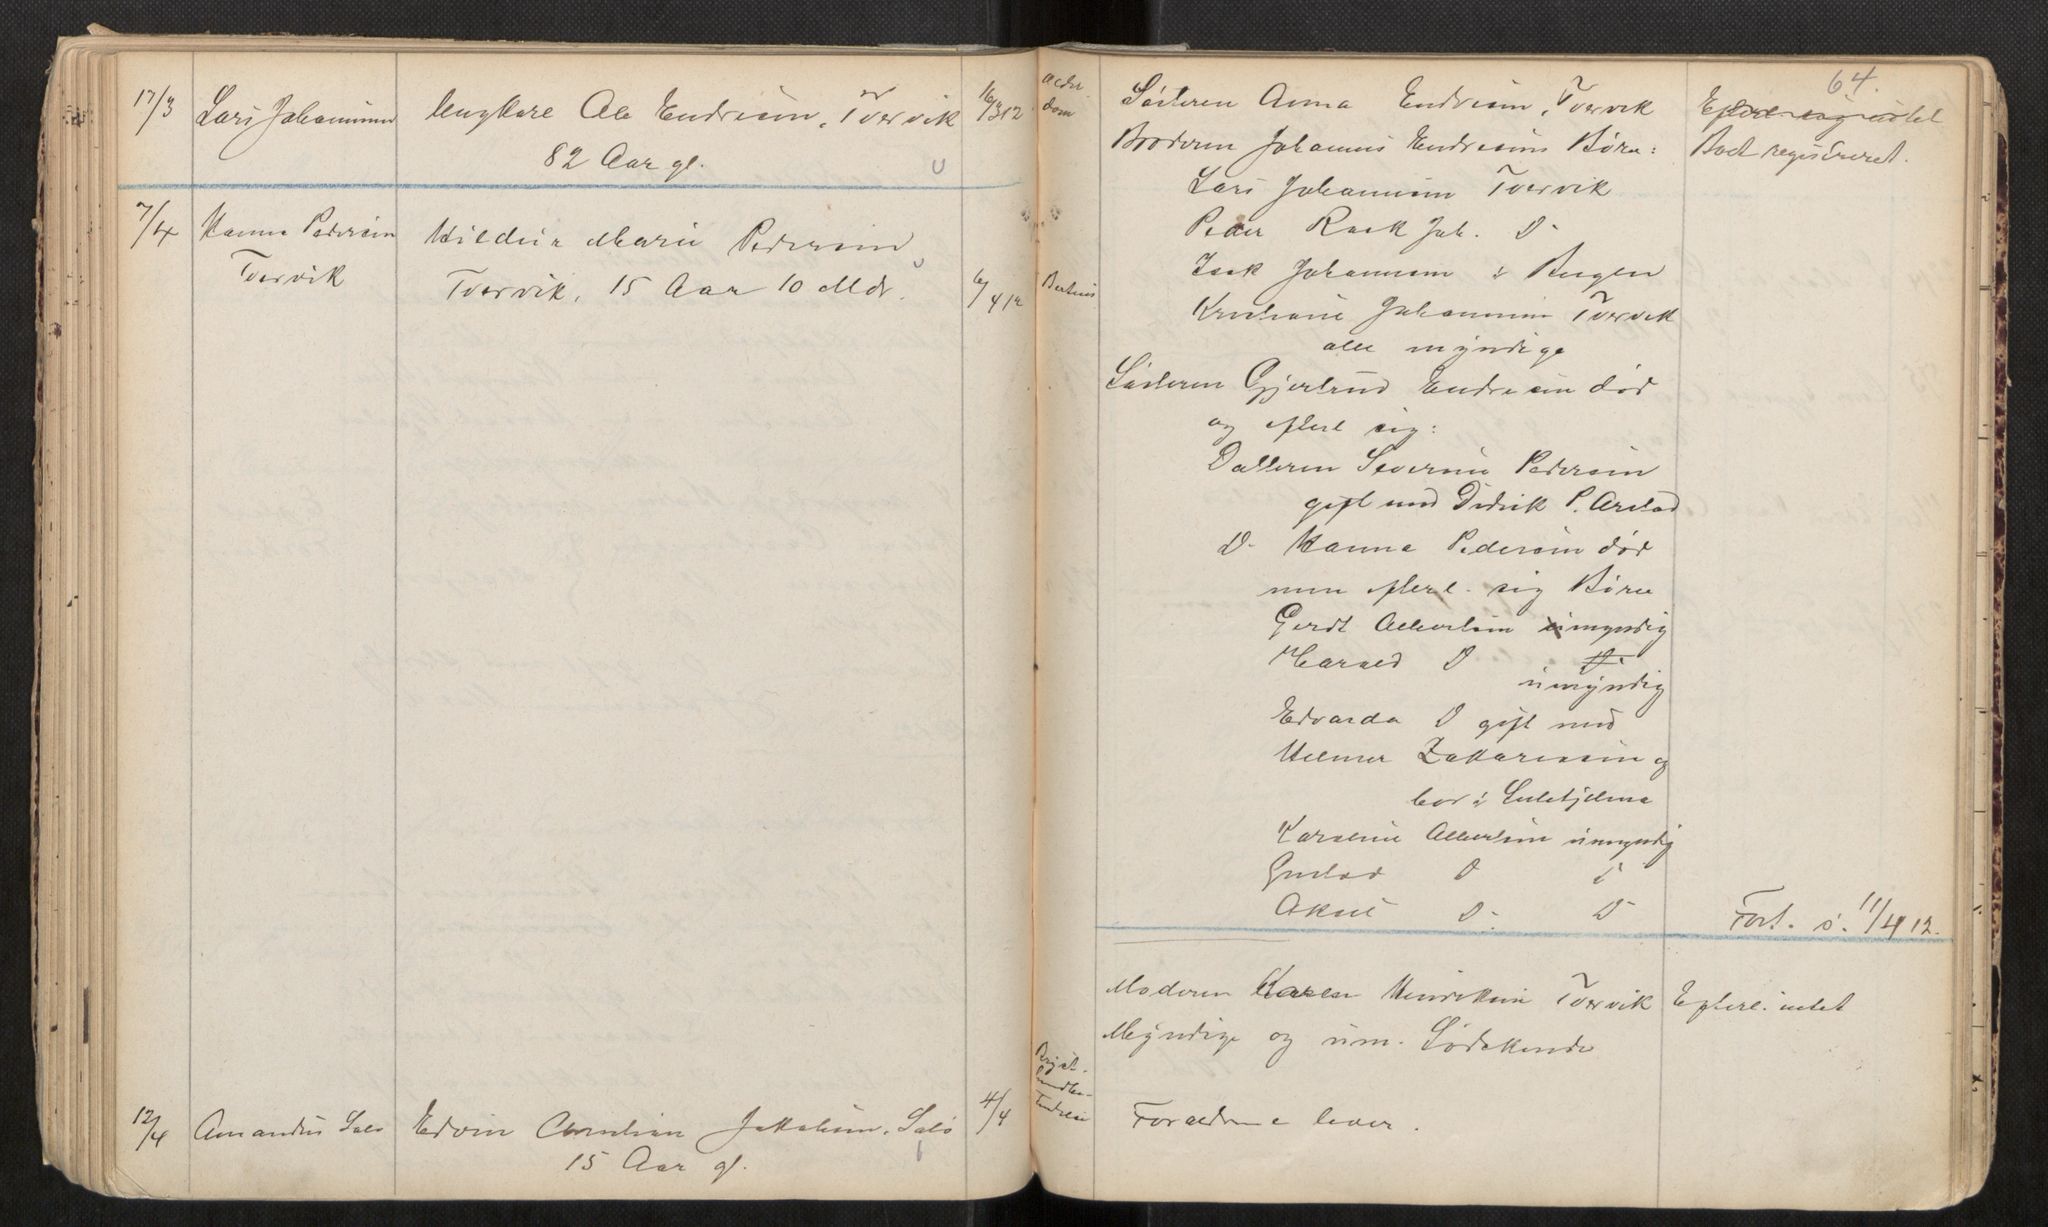 64.
17/3 Lars Johannesen Ungkare Ole Endresen, Tvervik 16/3 12
82 Aar gl.
7/4 Hanna Pedersen
Tvervik
Hildur Marie Pedersen
Tvervik, 15 Aar 10 Mdr. 6/4 12
12/4 Amandus Salo Edvin Jakobsen, Salo 4/4
15 Aar gl.
Alder-
dom
Søsteren Anna Endresen, Tvervik Efterl. sig intet
Broderen Johannes Endresens Børn: Boet registreret.
Lars Johannesen Tvervik
Peder Rask Joh. D-
Isak Johannesen i Bergen
Kristiane Johannesen Tvervik
alle myndige
Søsteren Gjertrud Endresen død
og efterl sig:
Datteren Severine Pedersen
gift med Didrik P. Arstad
D- Hanna Pedersen død
men efterl. sig Børn
Gerdt Albertsen umyndig
Harald D D-
umyndig
Edvarda D gift med
Hilmer Zakariassen og
bor i Sulitjelma
Karoline Albertsen umyndig
Gustav D D
Aksel D- D- Fort. s. 11/4 12.
Moderen Karen Henriksen Tvervik Efterl. intet
Myndige og um. Sødskende
Bryst-
Forældrene lever.